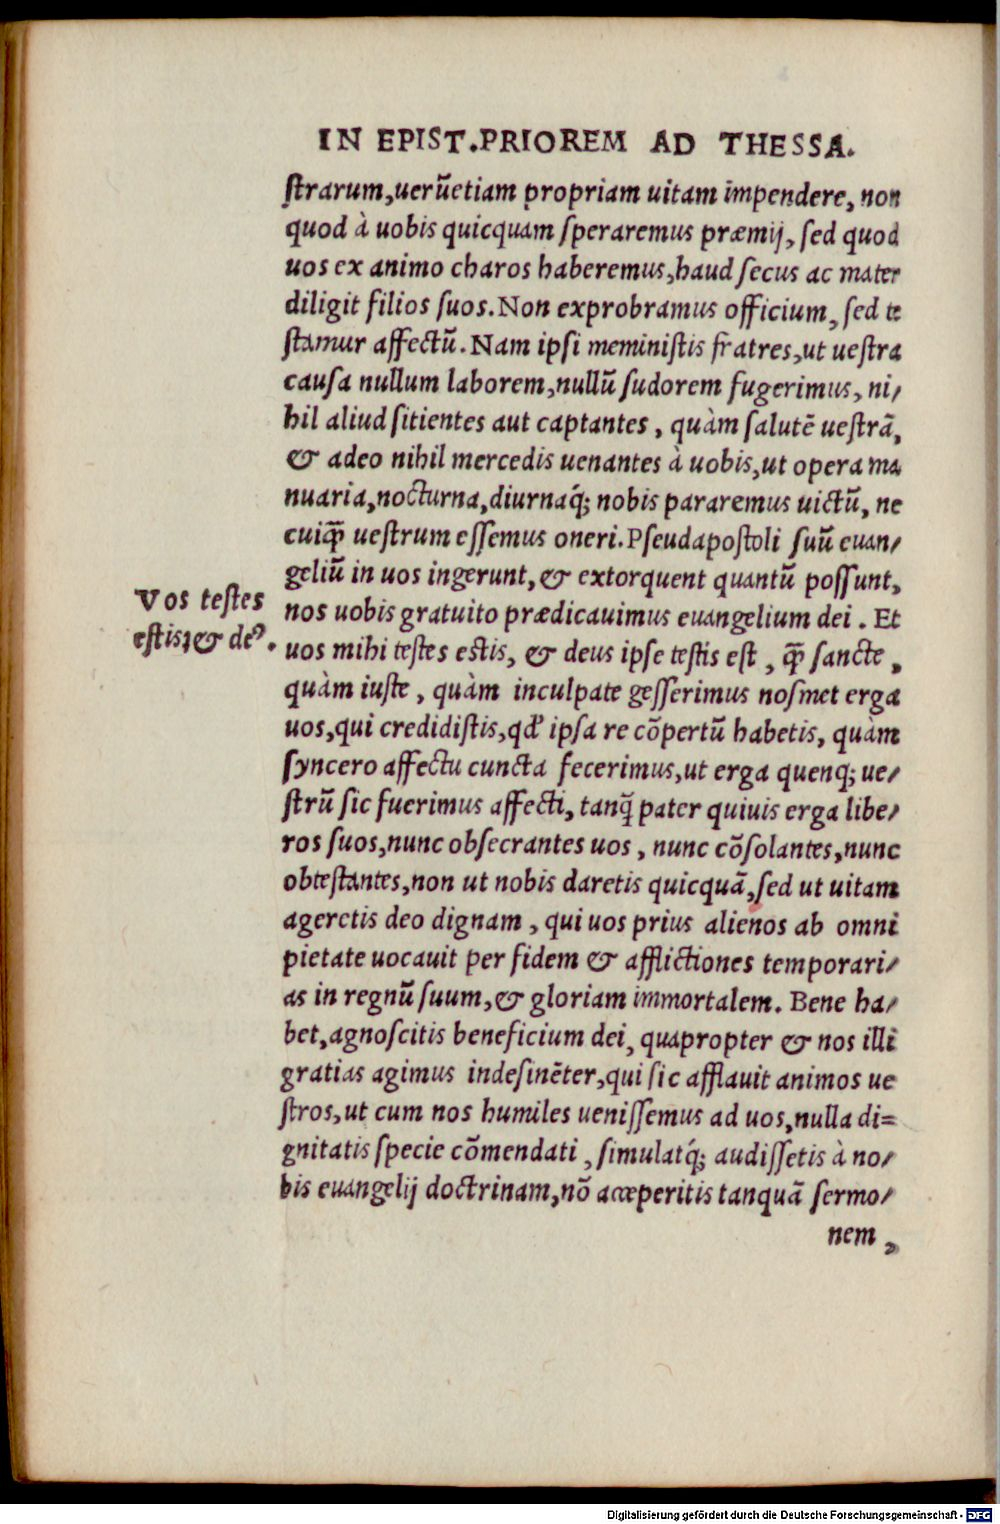 IN EPIST. PRIOREM AD THESSA.
ſtrarum, uerũetiam propriam uitam impendere, non
quod à uobis quicquam ſperaremus præmij, ſed quod
uos ex animo charos haberemus, haud ſecus ac mater
diligit filios ſuos. Non exprobramus officium, ſed te
ſtamur affectũ. Nam ipſi meminiſtis fratres, ut ueſtra
cauſa nullum laborem, nullũ ſudorem fugerimus, ni/
hil aliud ſitientes aut captantes, quàm ſalutẽ ueſtrã,
& adeo nihil mercedis uenantes à uobis, ut opera ma
nuaria, nocturna, diurnaq́; nobis pararemus uictũ, ne
cuiq̃ ueſtrum eſſemus oneri. Pſeudapoſtoli ſuũ euan/
geliũ in uos ingerunt, & extorquent quantũ poſſunt,
Vos teſtes
eſtis, & deꝰ.
nos uobis gratuito prædicauimus euangelium dei. Et
uos mihi teſtes eſtis, & deus ipſe teſtis eſt, q̃ ſancte,
quàm iuſte, quàm inculpate geſſerimus noſmet erga
uos, qui credidiſtis, qd' ipſa re cõpertũ habetis, quàm
ſyncero affectu cuncta fecerimus, ut erga quenq; ue/
ſtrũ ſic fuerimus affecti, tanq̃ pater quiuis erga libe/
ros ſuos, nunc obſecrantes uos, nunc cõſolantes, nunc
obteſtantes, non ut nobis daretis quicquã, ſed ut uitam
ageretis deo dignam, qui uos prius alienos ab omni
pietate uocauit per fidem & afflictiones temporari/
as in regnũ ſuum, & gloriam immortalem. Bene ha/
bet, agnoſcitis beneficium dei, quapropter & nos illi
gratias agimus indeſinẽter, qui ſic afflauit animos ue
ſtros, ut cum nos humiles ueniſſemus ad uos, nulla di=
gnitatis ſpecie cõmendati, ſimulatq́; audiſſetis à no/
bis euangelij doctrinam, nõ acceperitis tanquã ſermo/
nem,
Digitalisierung gefördert durch die Deutsche Forschungsgemeinschaft - DFG